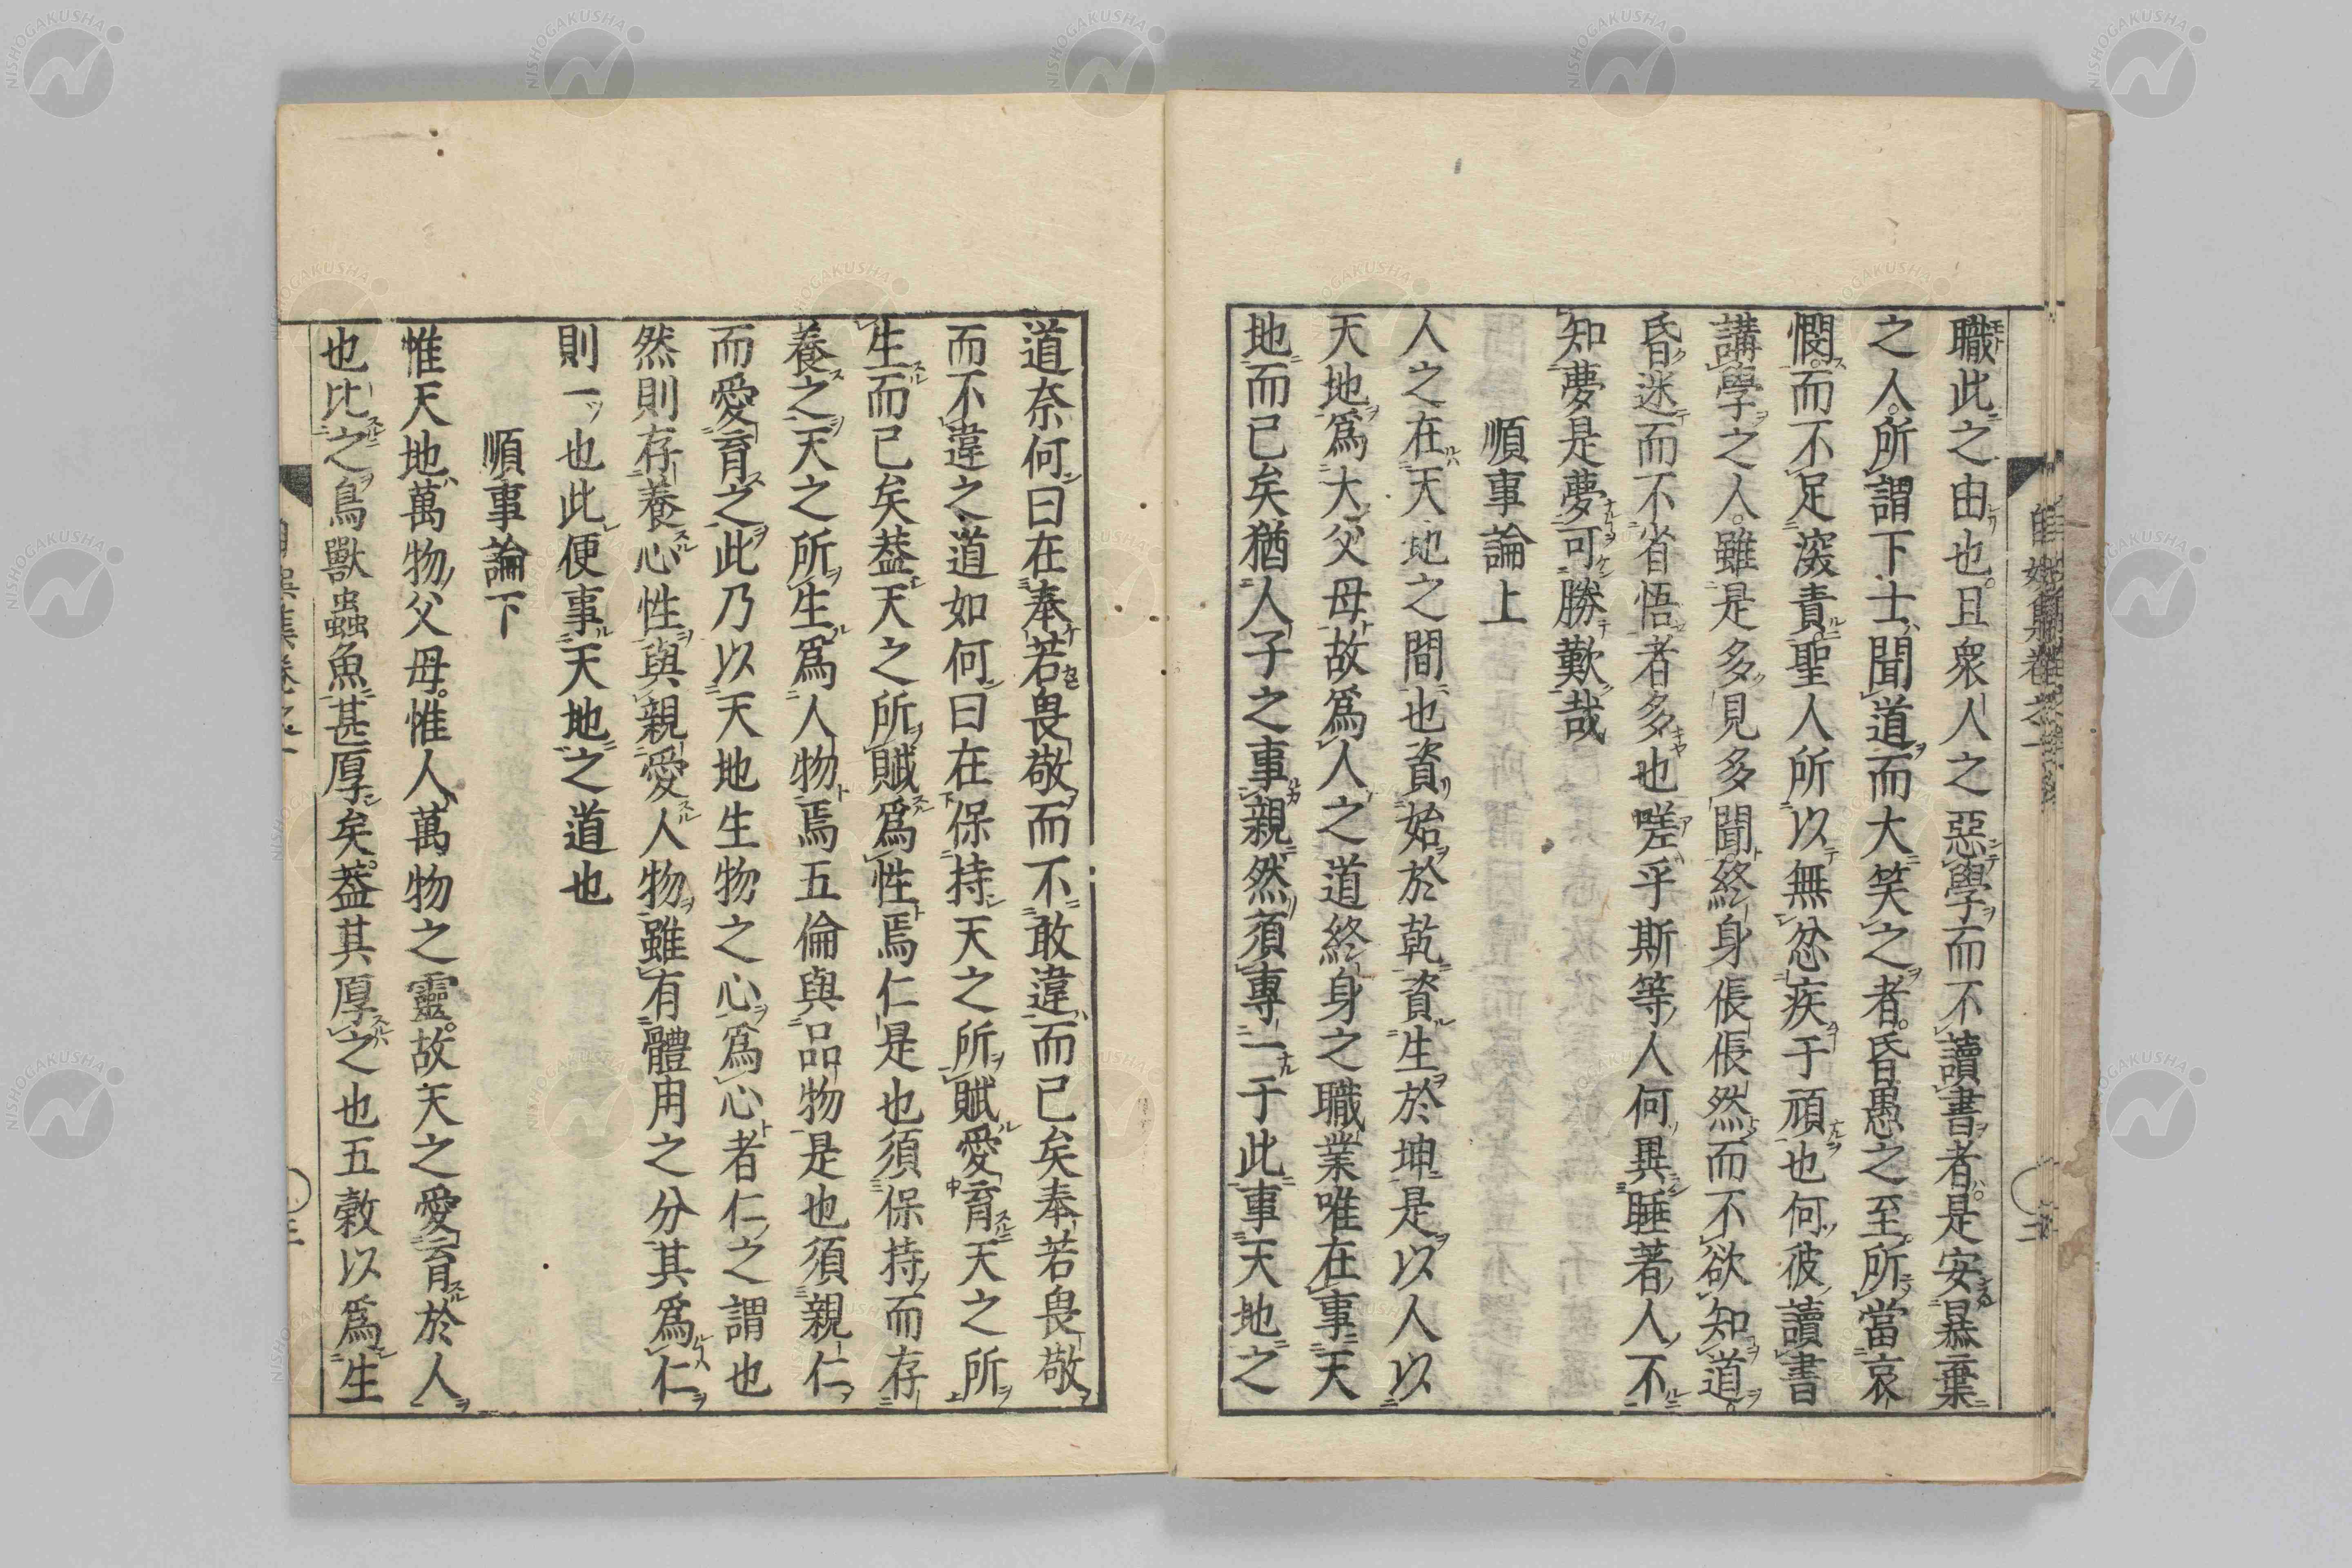 職此之由也且衆人之惡學而不讀書者是安暴棄
之人所謂下士聞道而大笑之者昏愚之至所當哀
憫而不足深責聖人所以無忿疾于頑也何彼讀書
講學之人雖是多多見多聞終身倀倀然而不欲知道
昏迷而不省悟者多也嗟乎斯等人何異睡著人不
知夢是夢可勝歎哉
順事論上
人之在天地之間也資始於乾資生於坤是以人以
天地爲大父母故爲人之道終身之職業唯在事天
地而已矣猶人子之事親然須專一于此事天地之
道奈何曰在奉若畏敬而不敢違而已矣奉若畏敬
而不違之道如何曰在保持天之所賦愛育天之所
生而已矣葢天之所賦爲性焉仁是也須保持而存
養之天之所生爲人物焉五倫與品物是也須親仁
而愛育之此乃以天地生物之心爲心者仁之謂也
然則存養心性與親愛人物雖有體用之分其爲仁
則一也此便事天地之道也
順事論下
惟天地萬物父母惟人萬物之靈故天之愛育於人
也比之鳥獸蟲魚甚厚矣葢其厚之也五穀以爲生
NISHOGAKUSHA